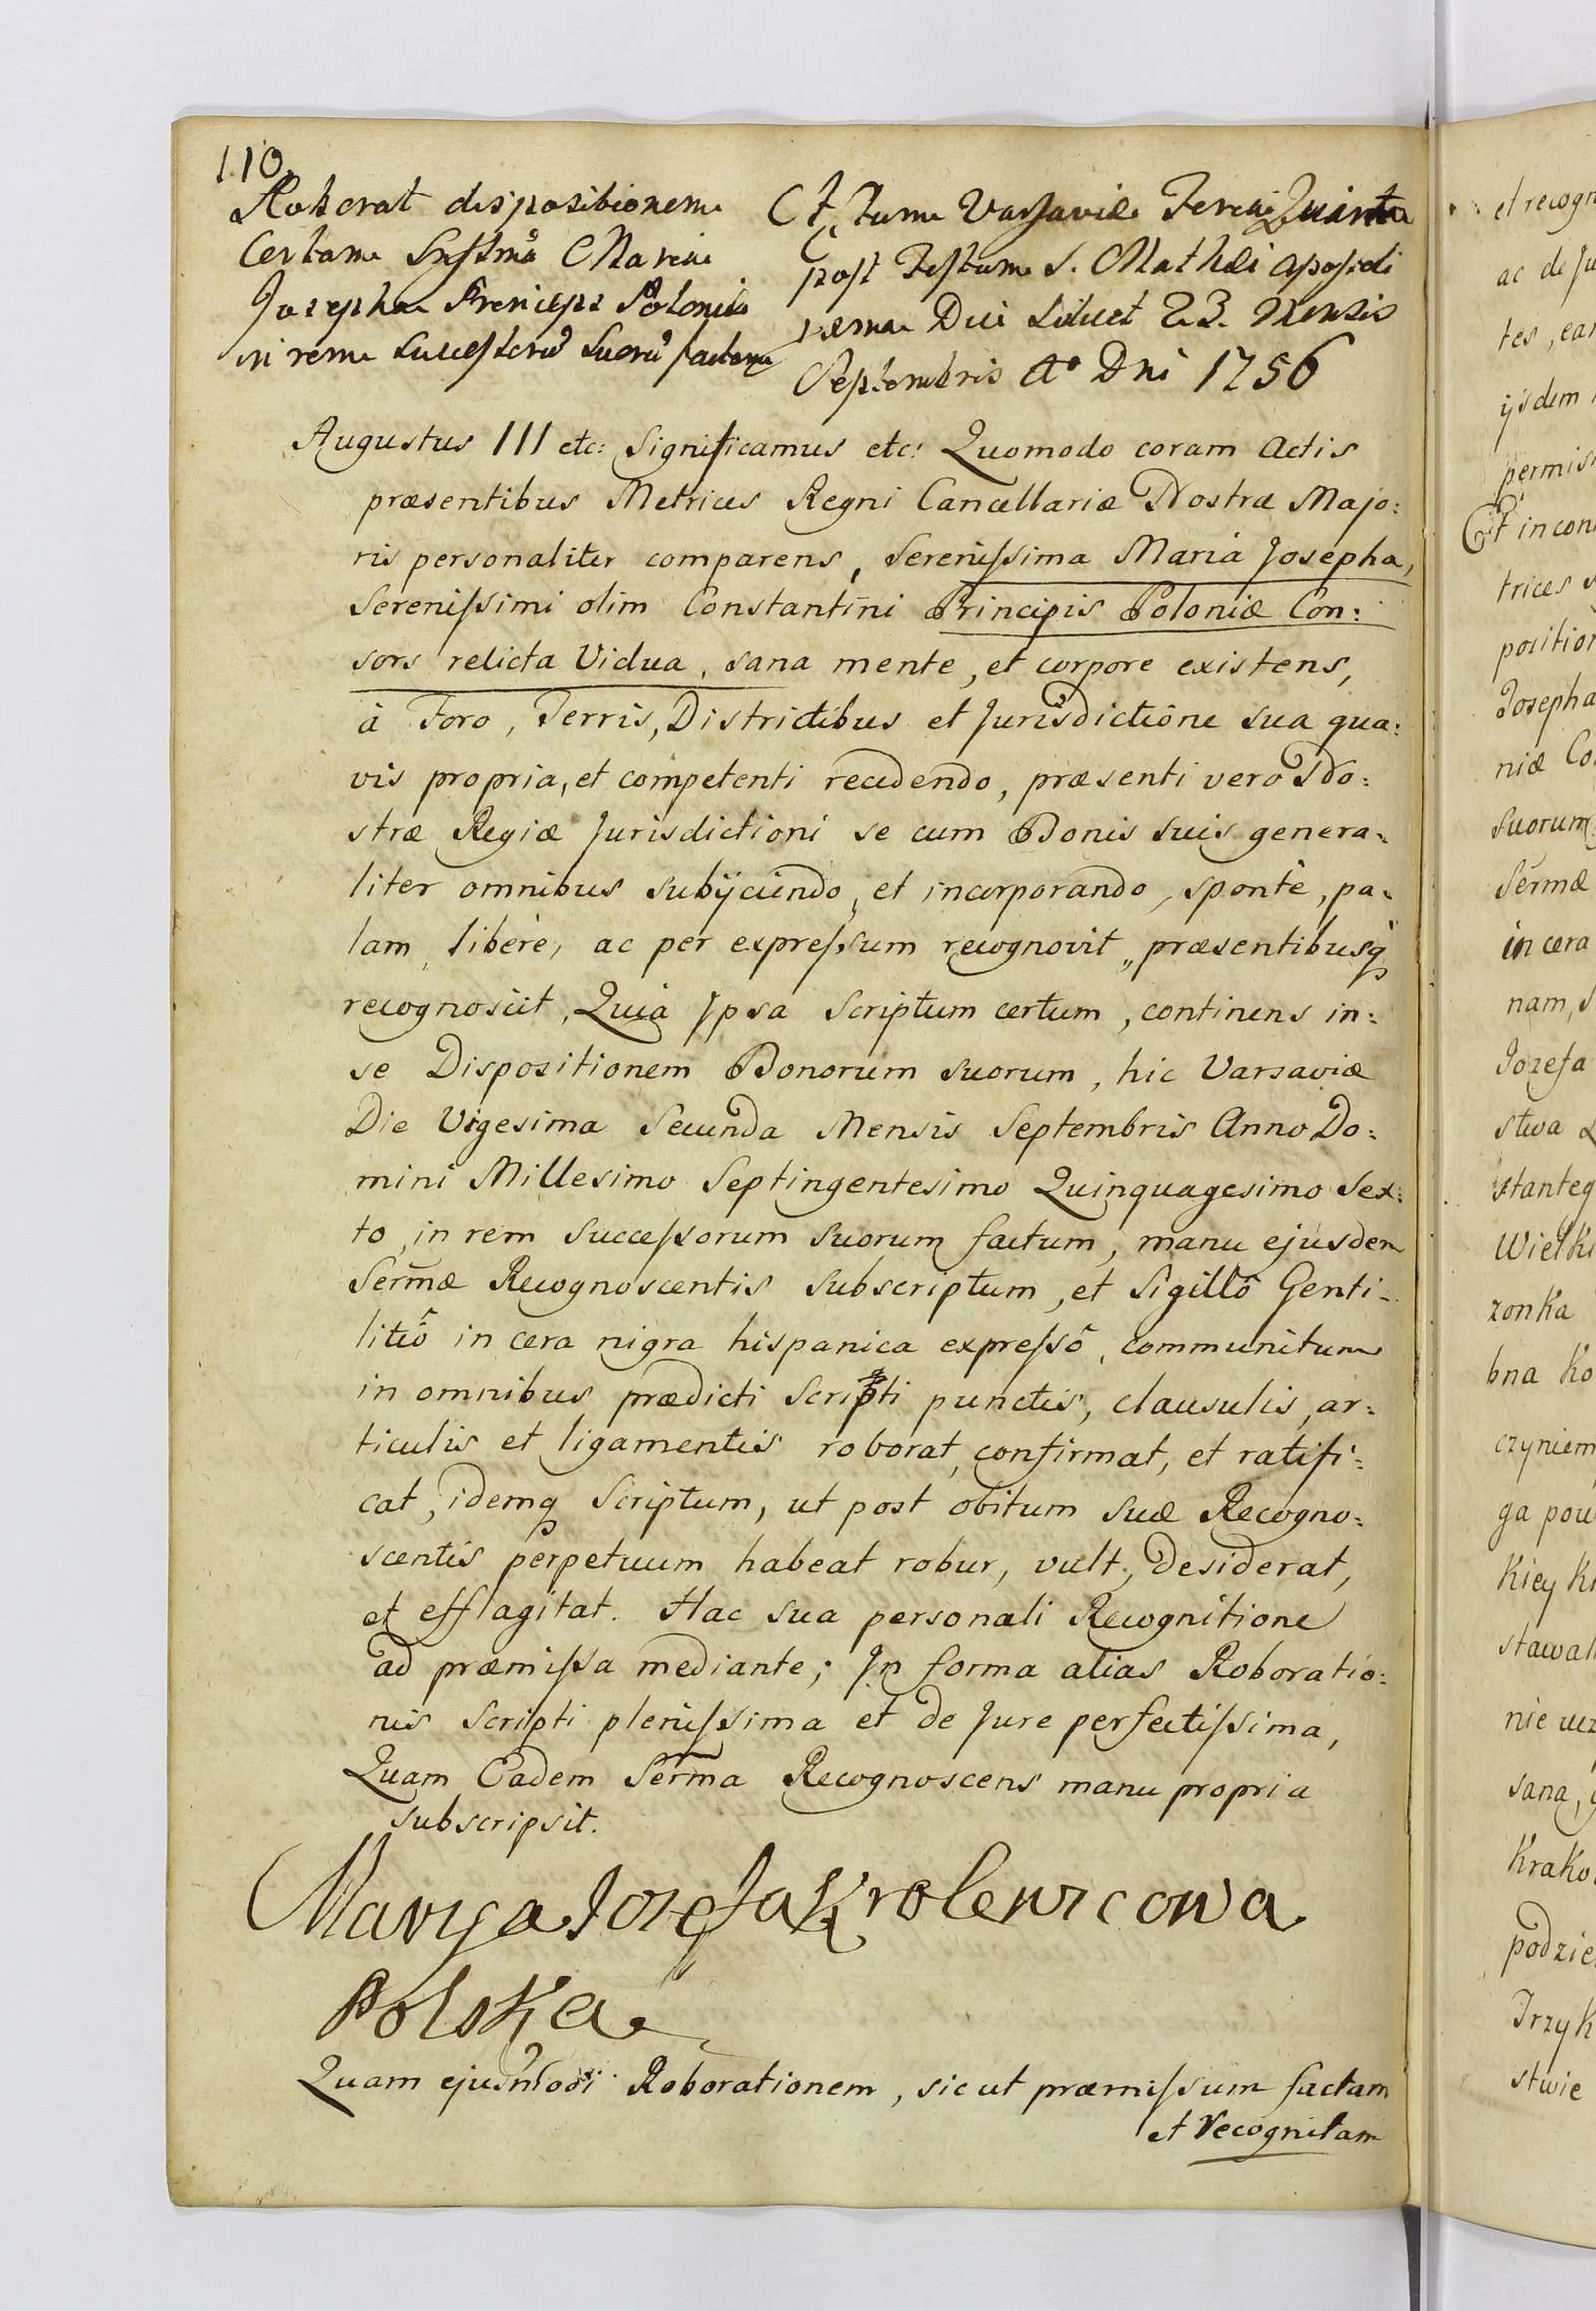 110.
Roborat dispositionem
Certam Srssima Maria
Josepha Princeps Poloniæ
in rem Successorũ Suorũ factam
Actum Varsaviæ Feria Quinta
post Festum S. Mathæi Apostoli
Die 23. Mensis
Septembris Aº Dni 1756
Augustus III etc: Significamus etc: Quomodo coram Actis
præsentibus Metrices Regni Cancellariæ Nostræ Majo:
ris personaliter comparens, Serenissima Maria Josepha,
Serenissimi olim Constantini Principis Poloniæ Con:
sors relicta Vidua, sana mente, et corpore existens,
à Foro, Terris, Districtibus et Jurisdictione sua qua:
vis propria, et competenti recedendo, præsenti vero No:
stræ Regiæ Jurisdictioni se cum Bonis suis genera:
liter omnibus subijciendo, et incorporando, sponte, pa:
lam, liberè, ac per expressum recognovit, præsentibusq
recognoscit, Quia Ipsa Scriptum certum, continens in:
se Dispositionem Bonorum suorum, hic Varsaviæ
Die Vigesima Secunda Mensis Septembris Anno Do:
mini Millesimo Septingentesimo Quinquagesimo Sex:
to, in rem Successorum Suorum factum, manu ejusdem
Serm̃æ Recognoscentis subscriptum, et Sigillô Genti:
litiô in cera nigra hispanica expressô, communitum
in omnibus prædicti Scripti punctis, clausulis, ar:
ticulis et ligamentis roborat, confirmat, et ratifi:
cat, idemq Scriptum, ut post obitum suæ Recogno:
scentis perpetuum habeat robur, vult, desiderat,
et efflagitat. Hac sua personali Recognitione
ad præmissa mediante; In forma alias Roboratio:
nis Scripti plenissima et de Jure perfectissima,
Quam Eadem Serm̃a Recognoscens manu propria
subscripsit.
Marya Jozefa Krolewicowa
Polska
Quam ejusmodi Roborationem, sicut præmissum factam
et recognitam
et recogn
ac de Ju
tes, ear
ijsdem
permis
Et in con
trices s
position
Josepha
niæ Co
Suorum
Serm̃æ
in cera
nam, s
Jozefa
stwa
stanteg
Wielki
zonka
bna Ko
czyniem
ga pow
kiey K
stawał
nie uz
sana,
Krako
podzie
Trzyk
stwie